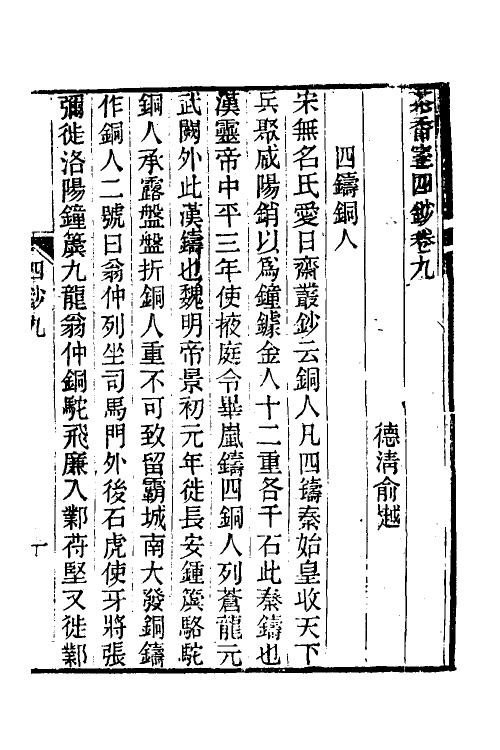 茶香室四鈔卷九
德清俞樾
四鑄銅人
宋無名氏愛日齋叢鈔云銅人凡四鑄秦始皇收天下
兵聚咸陽銷以爲鐘鐻金人十二重各千石此秦鑄也
漢靈帝中平三年使掖庭令畢嵐鑄四銅人列蒼龍元
武闕外此漢鑄也魏明帝景初元年徙長安鍾簴駱駝
銅人承露盤盤折銅人重不可致留霸城南大發銅鑄
作銅人二號曰翁仲列坐司馬門外後石虎使牙將張
彌徙洛陽鐘簴九龍翁仲銅駝飛廉入鄴苻堅又徙鄴
四鈔九